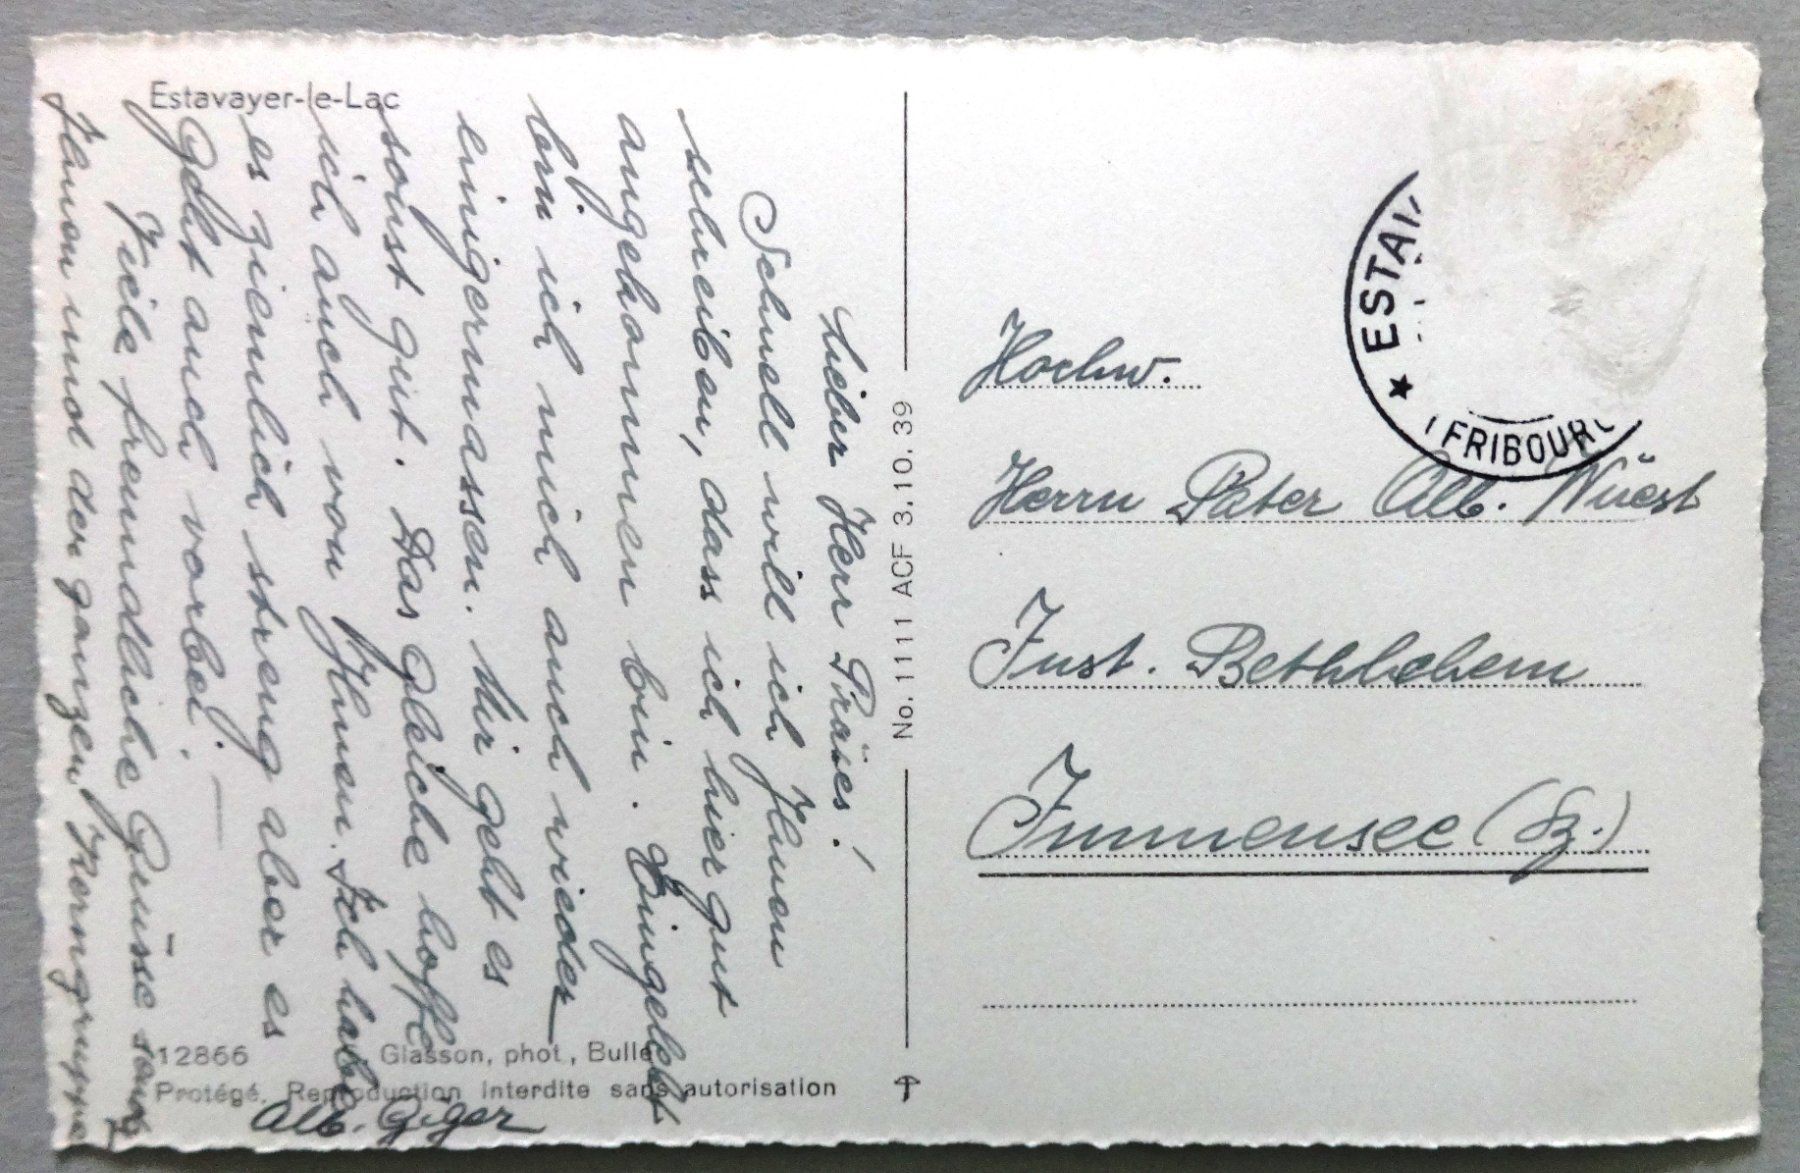 Estavayer-le-Lac
Lieber Herr Präses!
Schnell will ich Ihnen
schreiben, dass ich hier gut
angekommen bin. Eingelebt
bin ich mich auch wieder
einigermassen. Mir geht es
sonst gut. Das gleiche hoffe
ich auch von Ihnen. Ich habe
es ziemlich streng aber es
geht auch vorbei. —
Viele freundliche Grüsse sendet
Ihnen und der ganzen Kerngruppe
Alb. Giger
12866
Glasson, phot., Bulle
Protégé. Reproduction interdite sans autorisation
No. 1111 ACF 3.10.39
★ ESTAV
FRIBOURG
Hochw.
Herrn Pater Alb. Wüest
Inst. Bethlehem
Immensee (Sz.)